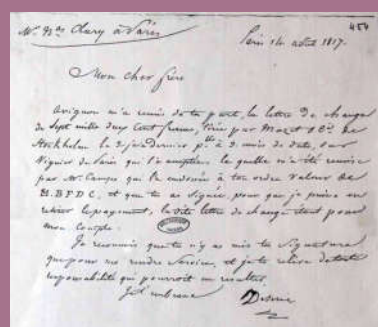 Mr. Nas Clary à Paris
454
Paris 14 août 1817.
Mon cher frère
Avignon m'a remis de ta part, la lettre de change
de Sept mille deux Cent francs, tirée par Mazet & Cie. de
Stockholm le dernier à 3. mois de date, sur
Vignier de Paris qui l'a acceptée, la quelle m'a été remise
par Mr. Camps qui l'a endossée à ton ordre valeur de
H.BFDC, et que tu as signée, pour que je puisse en
retirer le payement, la dite lettre de change étant pour
mon compte.
Je reconnais que tu n'y as mis ta Signature
que pour me rendre Service, et je te relève de toute
responsabilité qui pourroit en résulter.
Je t'embrasse
Désirée